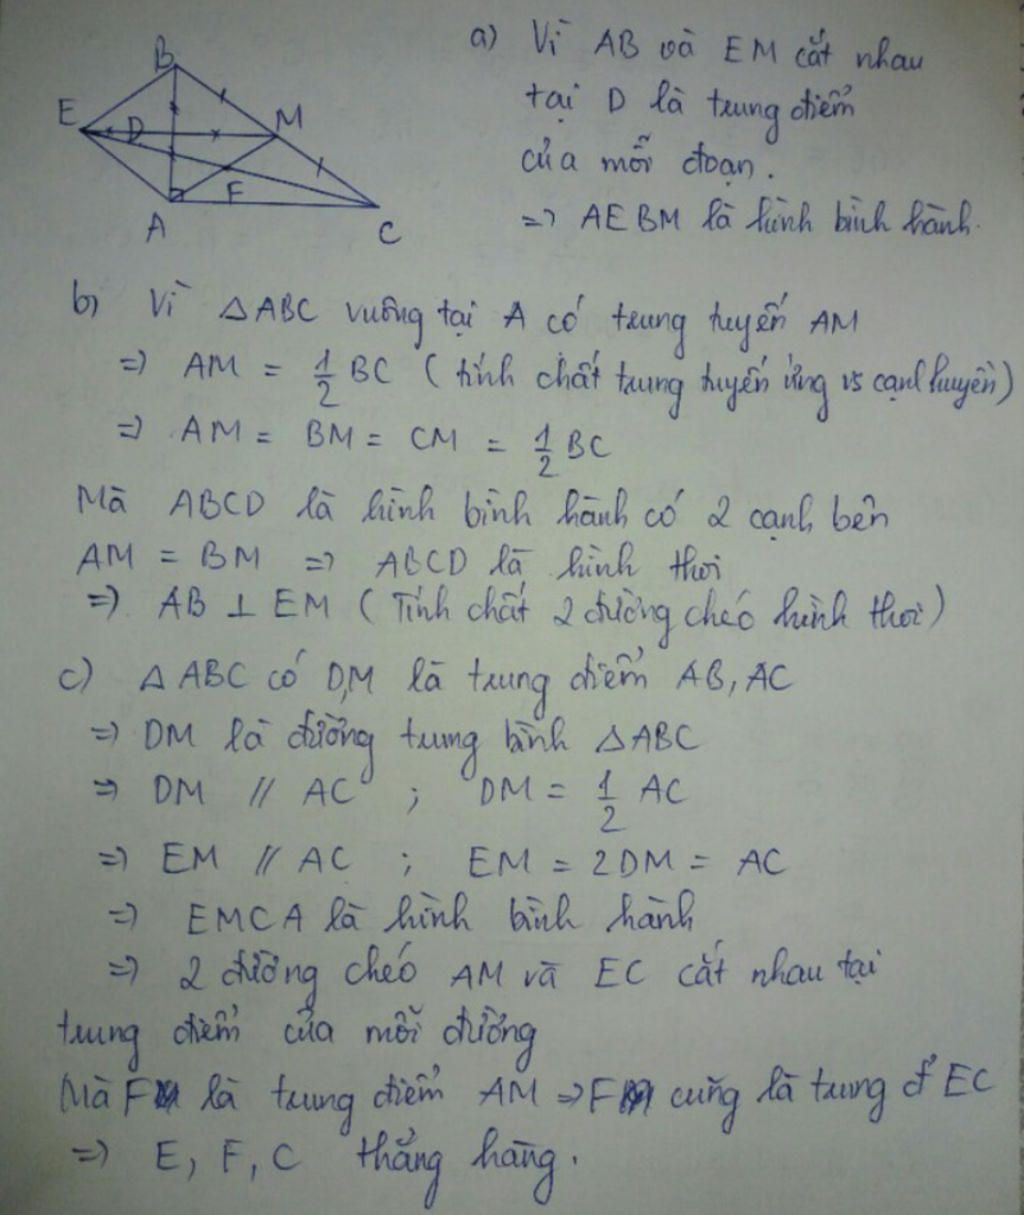 B
E
D
M
F
A
C
a) Vì AB và EM cắt nhau
tại D là trung điểm
của mỗi đoạn.
=> AEBM là hình bình hành.
b) Vì △ABC vuông tại A có trung tuyến AM
=> AM = 1/2 BC (tính chất trung tuyến ứng vs cạnh huyền)
=> AM = BM = CM = 1/2 BC
Mà ABCD là hình bình hành có 2 cạnh bên
AM = BM => ABCD là hình thoi
=> AB ⊥ EM (Tính chất 2 đường chéo hình thoi)
c) △ABC có D,M là trung điểm AB, AC
=> DM là đường trung bình △ABC
=> DM // AC ; DM = 1/2 AC
=> EM // AC ; EM = 2DM = AC
=> EMCA là hình bình hành
=> 2 đường chéo AM và EC cắt nhau tại
trung điểm của mỗi đường
Mà F là trung điểm AM => F cũng là trung đ' EC
=> E, F, C thẳng hàng.